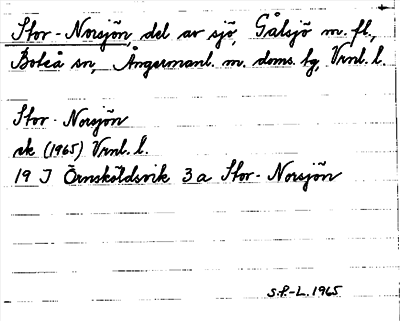 Stor-Norsjön, del av sjö, Gålsjö m.fl.,
Boteå sn, Ångermanl. m. doms. tg, Vrnl. l.
Stor-Norsjön
rk (1965) Vrnl. l.
19 J Örnsköldsvik 3a Stor-Norsjön
S.P.-L. 1965